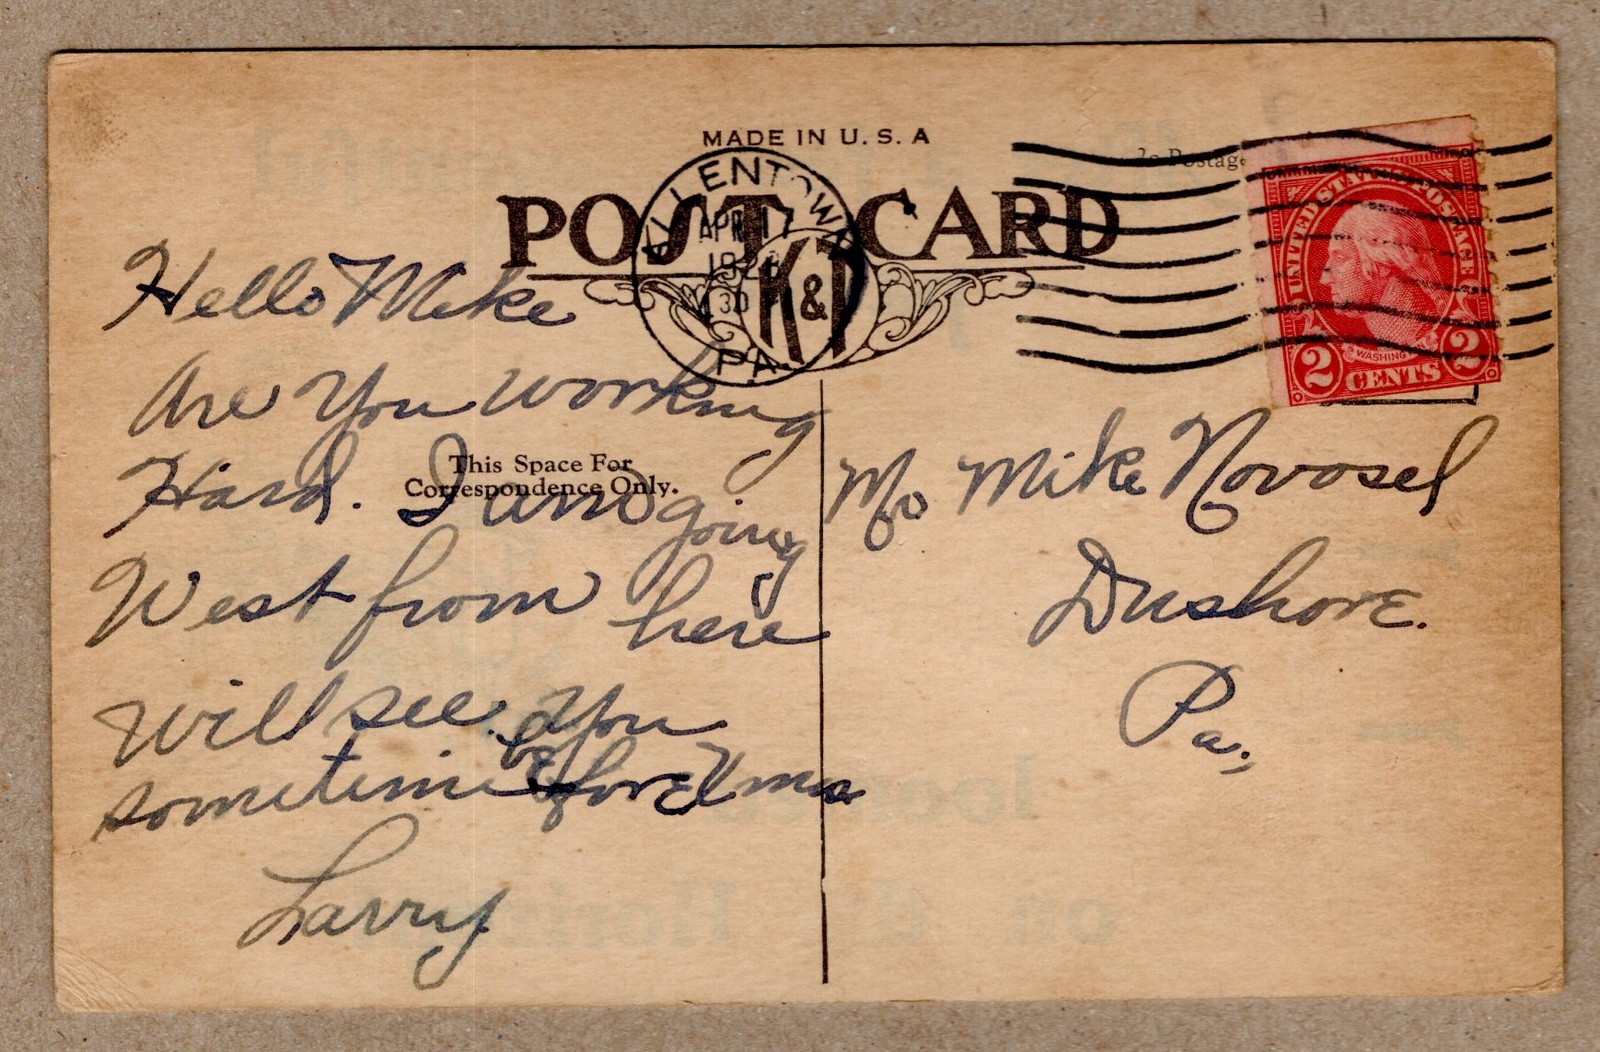 MADE IN U. S. A
POST CARD
ALLENTOWN
APR 17
PA.
K&T
Postage
UNITED STATES POSTAGE
WASHINGTON
2 CENTS 2
Hello Mike
Are You working
Hard. I am going
West from here
Will see You
sometime before Xmas
Larry
This Space For
Correspondence Only.
Mr Mike Novosel
Dushore.
Pa.